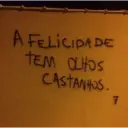 A FELICIDADE
TEM OLHOS
CASTANHOS.
7